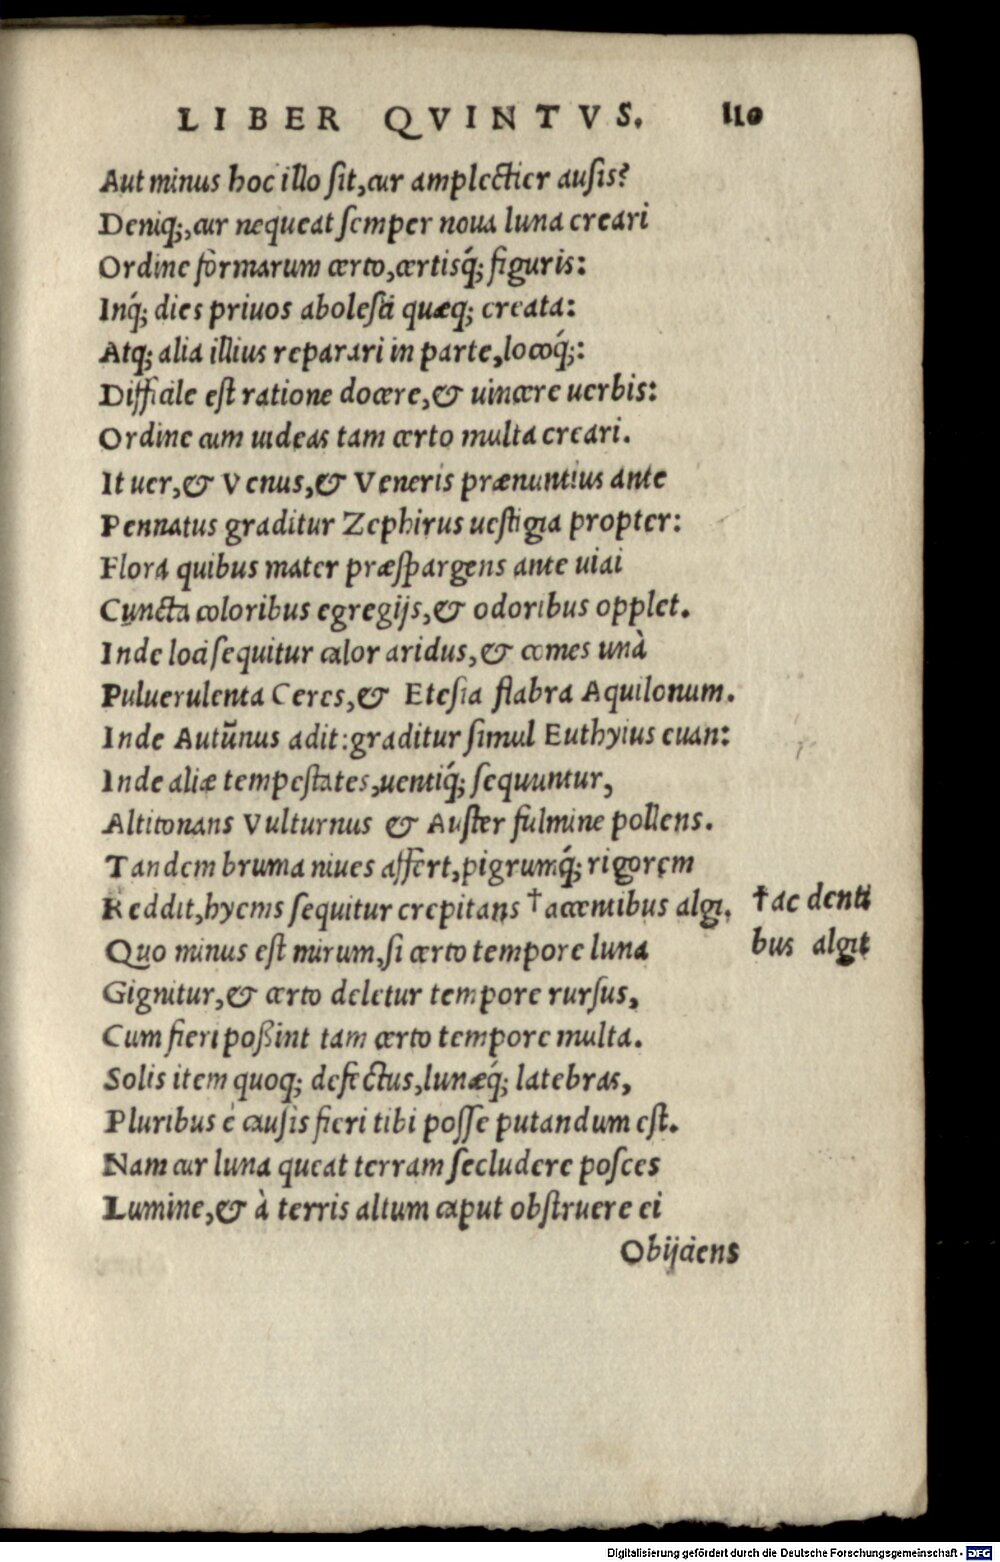 LIBER QVINTVS. 110
Aut minus hoc illo ſit, cur amplectier auſis?
Deniq;, cur nequeat ſemper noua luna creari
Ordine formarum certo, certisq́; figuris:
Inq́; dies priuos aboleſci quæq; creata:
Atq; alia illius reparari in parte, locoq́;:
Difficile eſt ratione docere, & uincere uerbis:
Ordine cum uideas tam certo multa creari.
It uer, & Venus, & Veneris prænuntius ante
Pennatus graditur Zephirus ueſtigia propter:
Flora quibus mater præſpargens ante uiai
Cuncta coloribus egregijs, & odoribus opplet.
Inde loci ſequitur calor aridus, & comes unà
Puluerulenta Ceres, & Eteſia flabra Aquilonum.
Inde Autũnus adit: graditur ſimul Euthyius euan:
Inde aliæ tempeſtates, uentiq́; ſequuntur,
Altitonans Vulturnus & Auſter fulmine pollens.
Tandem bruma niues affert, pigrumq́; rigorem
Reddit, hyems ſequitur crepitans † accentibus algi. † ac denti
Quo minus est mirum, ſi certo tempore luna bus algit
Gignitur, & certo deletur tempore rurſus,
Cum fieri poßint tam certo tempore multa.
Solis item quoq; defectus, lunæq́; latebras,
Pluribus è cauſis fieri tibi poſſe putandum eſt.
Nam cur luna queat terram ſecludere poſces
Lumine, & à terris altum caput obſtruere ei
Obijciens
Digitalisierung gefördert durch die Deutsche Forschungsgemeinschaft - DFG